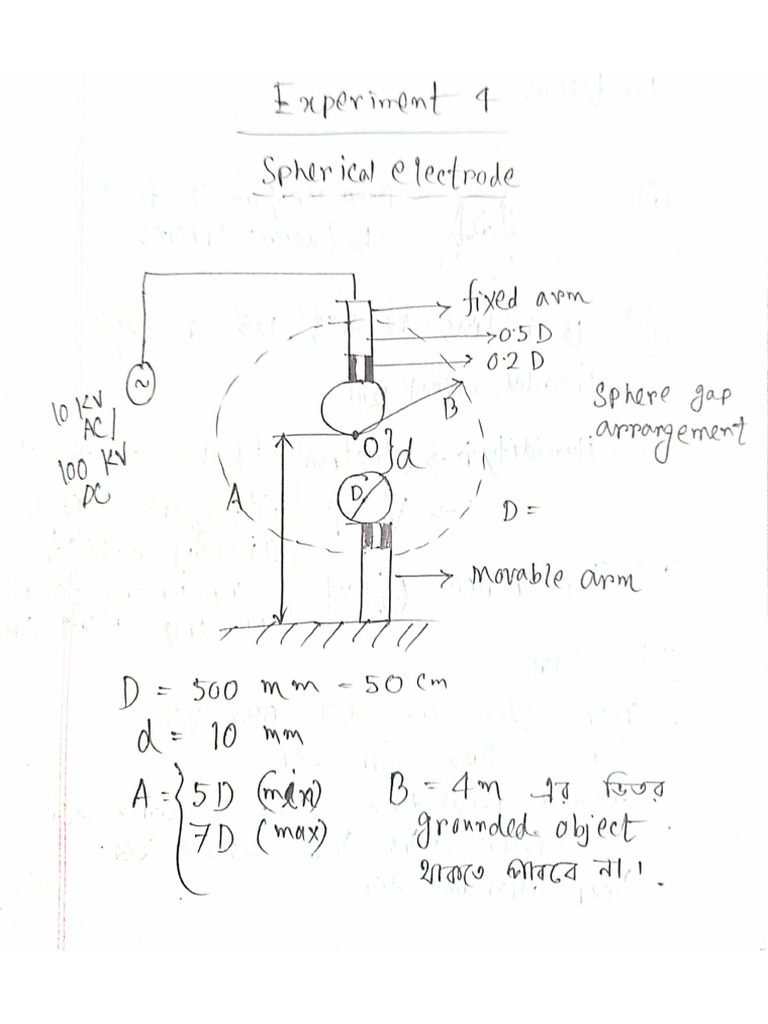 Experiment 4
Spherical electrode
fixed arm
0.5 D
0.2 D
10 KV
AC/
100 KV
DC
B
Sphere gap
arrangement
O
d
A
D
D =
Movable arm
D = 500 mm = 50 cm
d = 10 mm
A = { 5D (min)
7D (max)
B = 4m এর ভিতর
grounded object
থাকতে পারবে না।